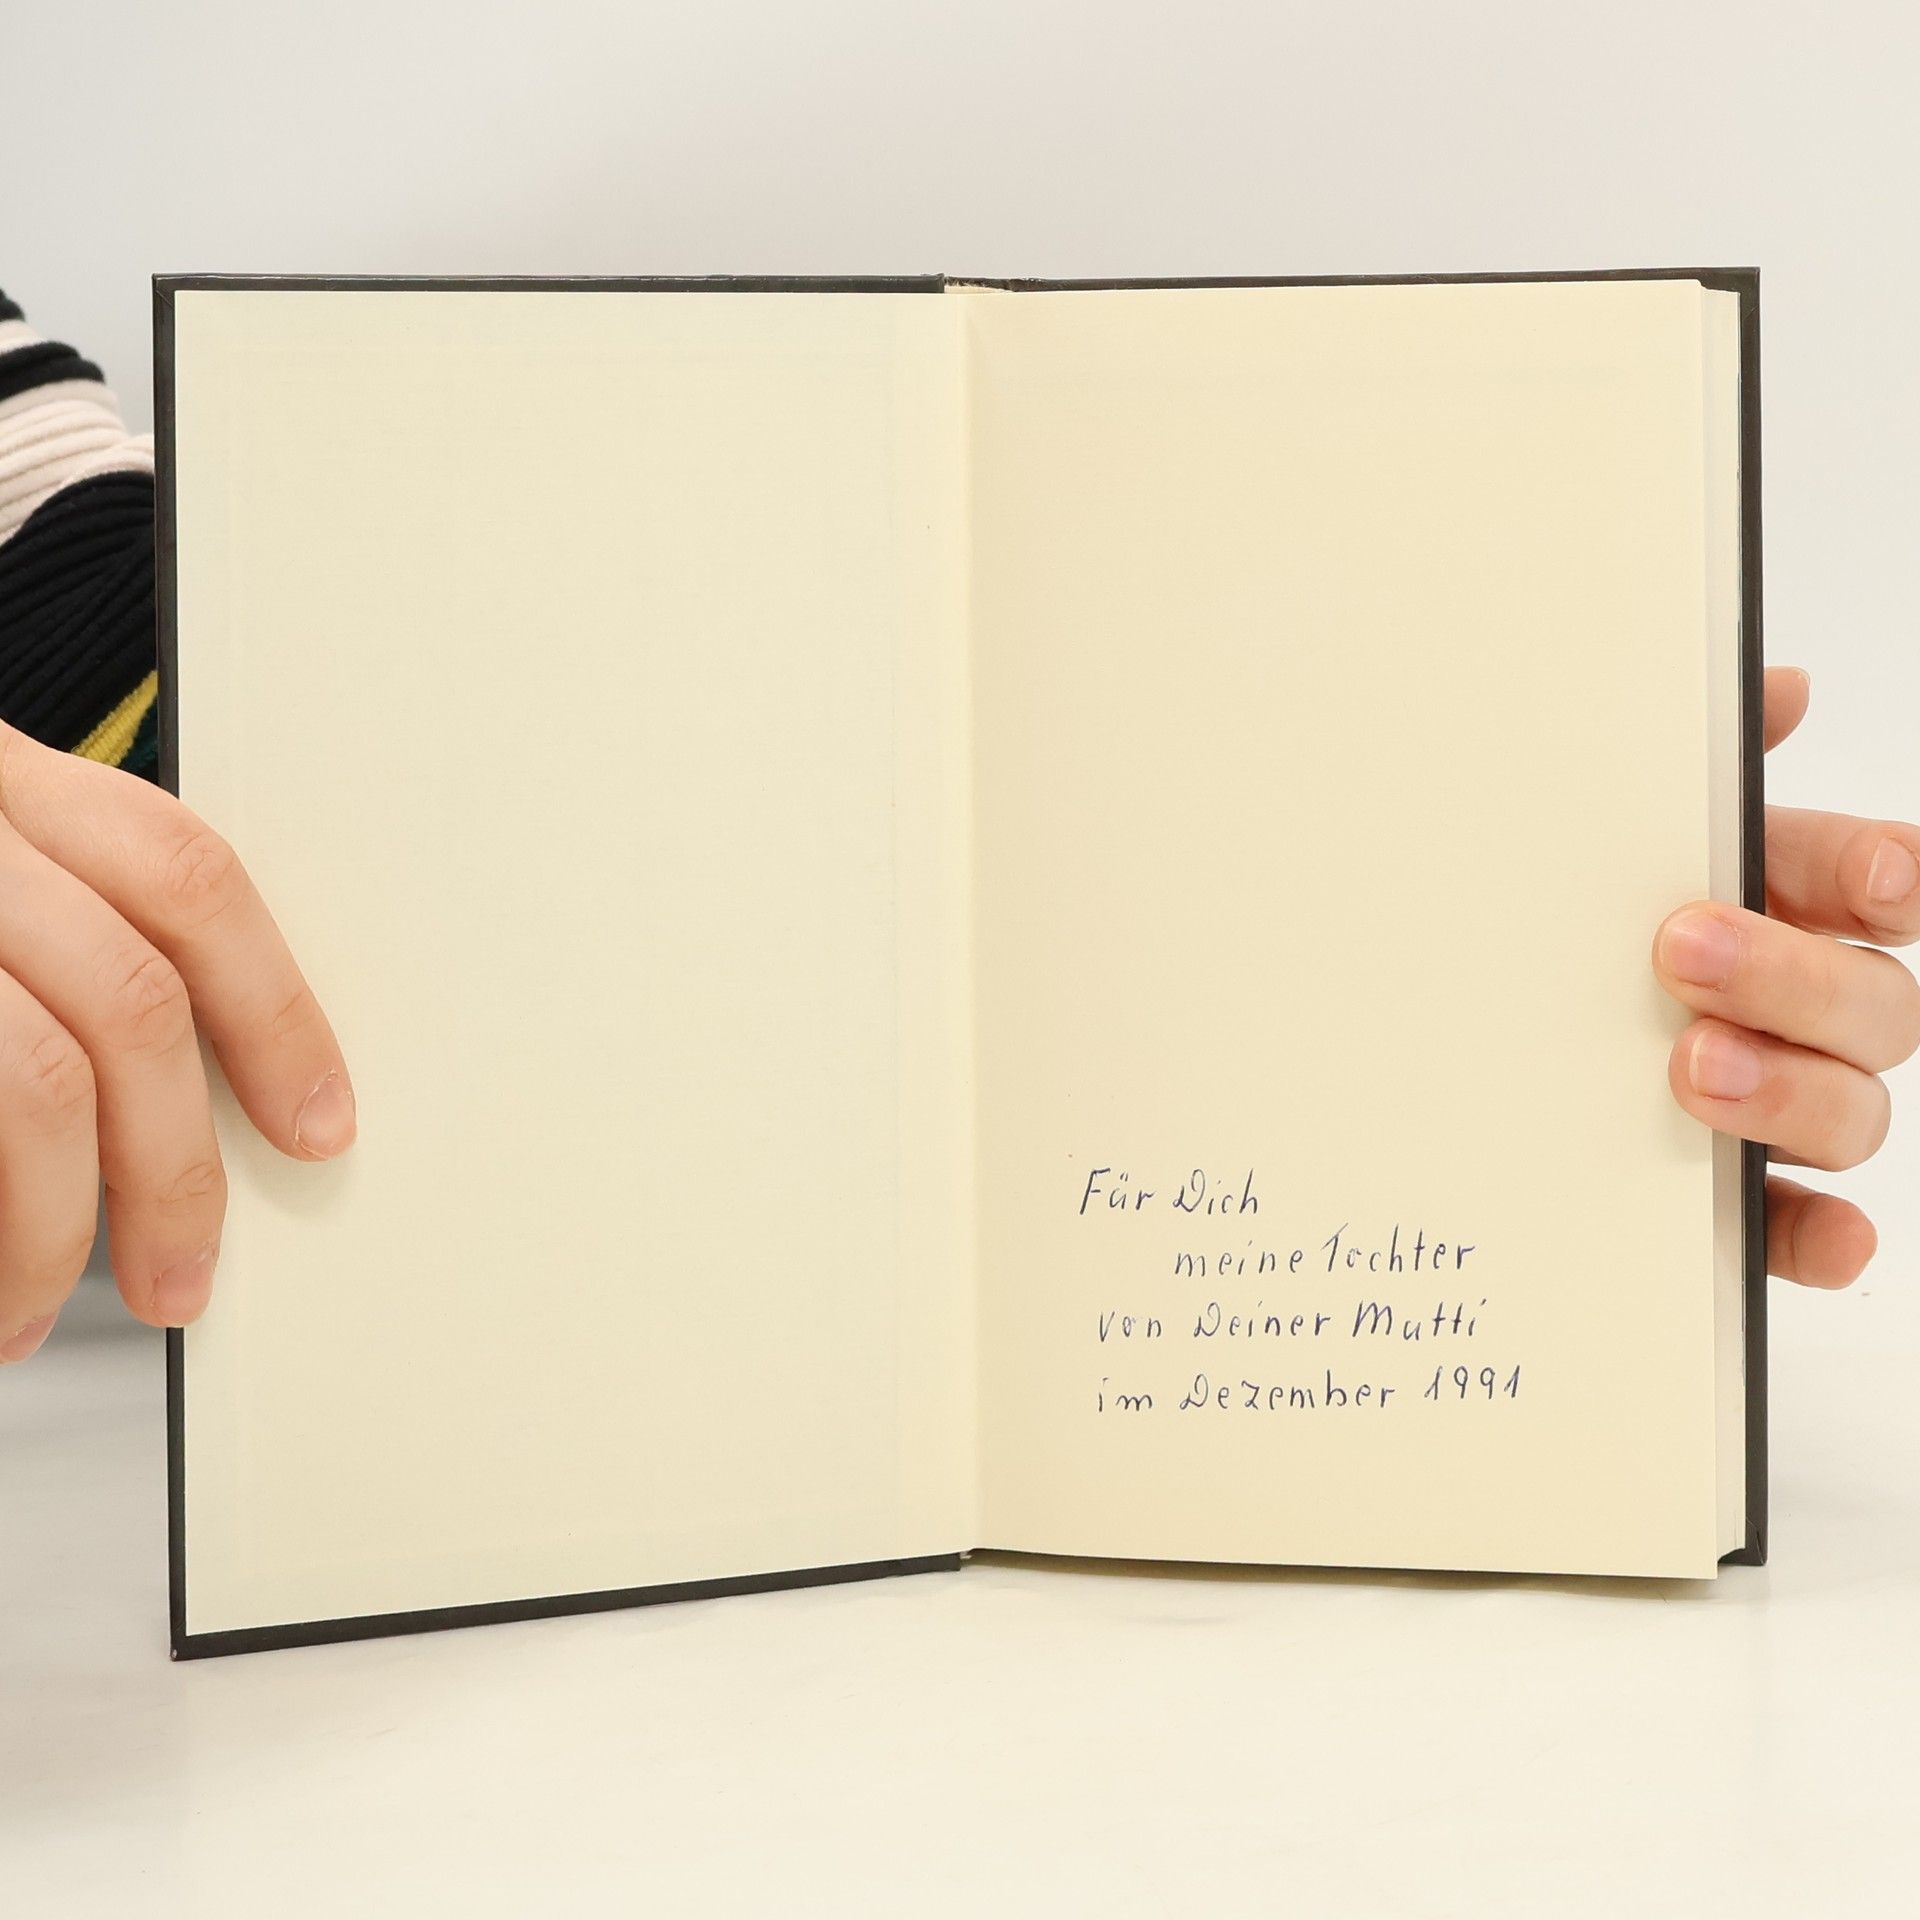 Für Dich
meine Tochter
von Deiner Mutti
im Dezember 1991